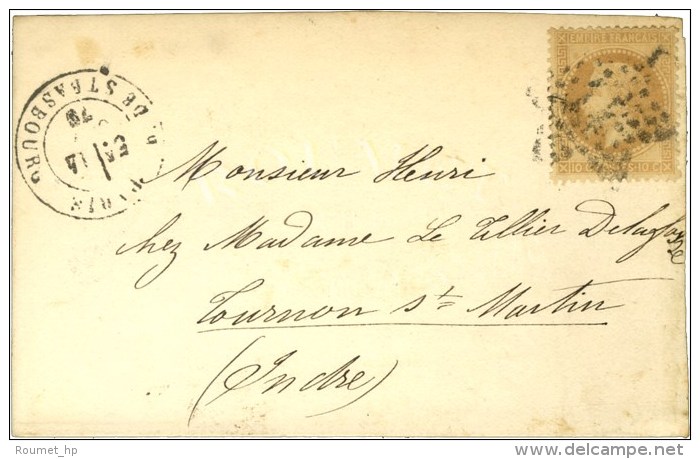 EMPIRE FRANÇAIS
10 C
10 C
PARIS
DE STRASBOURG
Monsieur Henri
chez Madame Le Tellier
Tournon St Martin
(Indre)
Roumet_hp
©delcampe.net